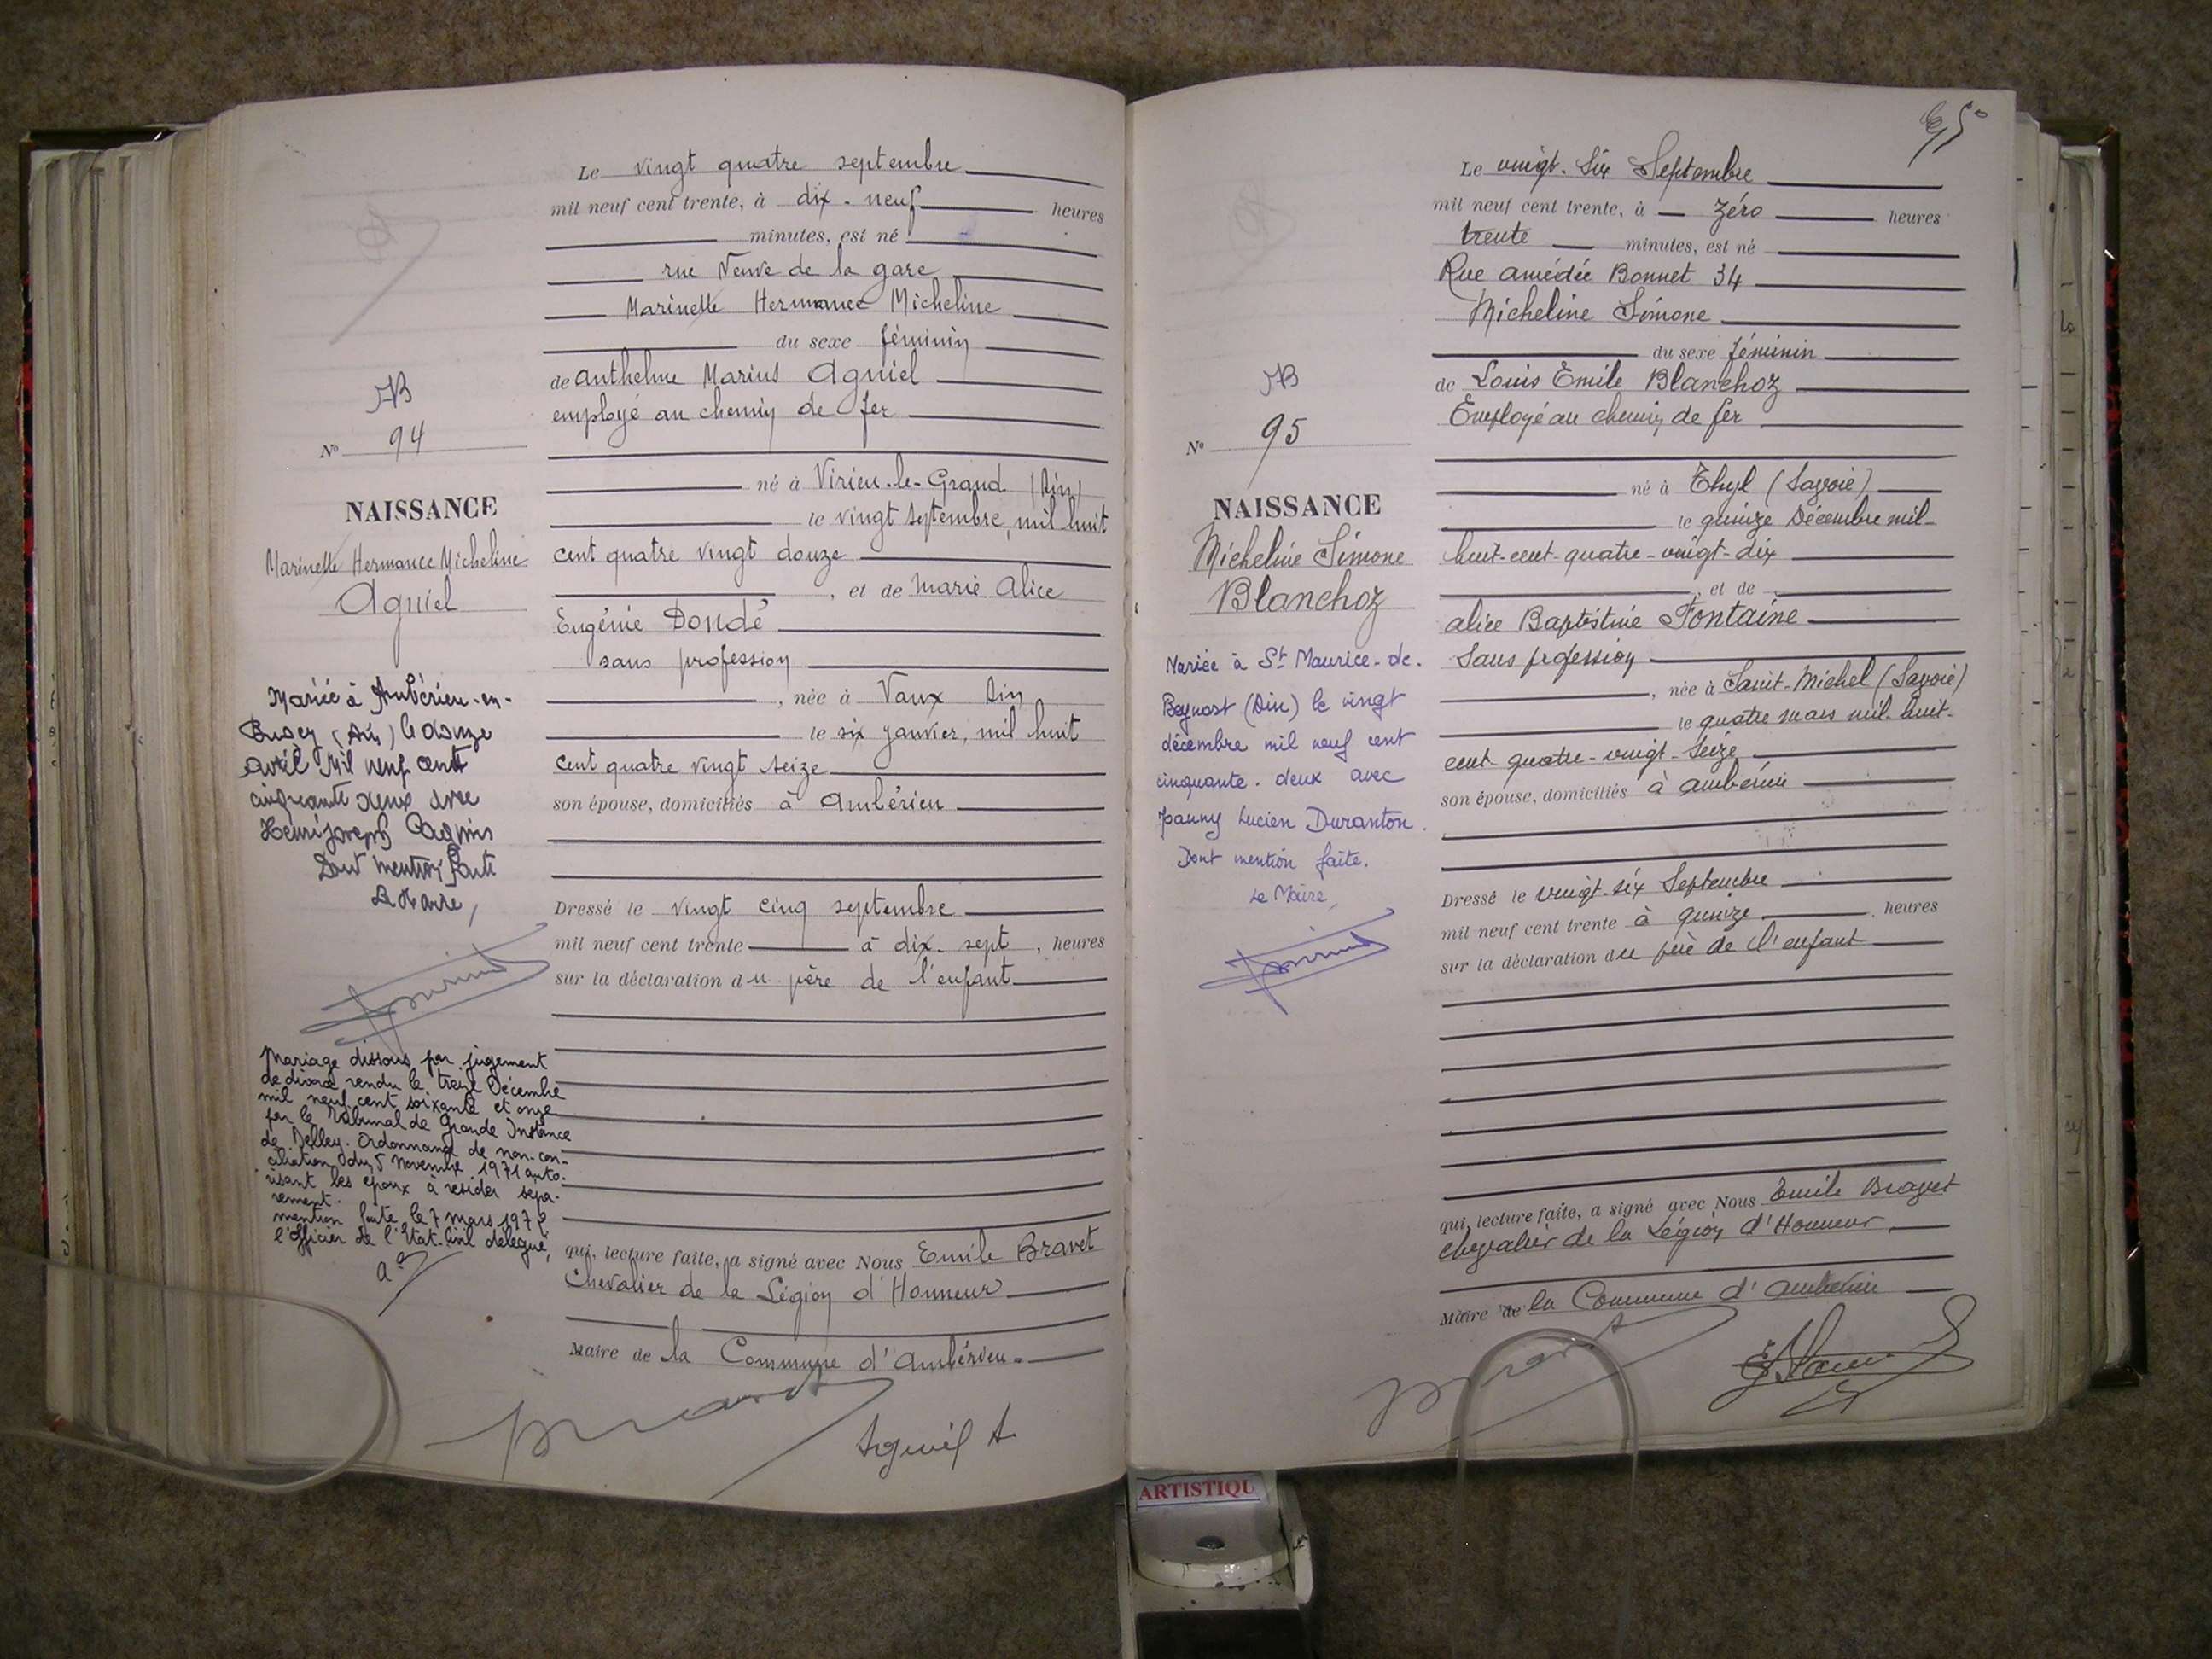 Le vingt quatre septembre
mil neuf cent trente, à dix-neuf heures
minutes, est né
rue Neuve de la gare
Marinette Hermance Micheline
du sexe féminin
de Anthelme Marius Agniel
employé au chemin de fer
né à Virieu-le-Grand (Ain)
le vingt septembre, mil huit
cent quatre vingt douze
, et de Marie Alice
Eugénie Dondé
sans profession
, née à Vaux Ain
le six janvier, mil huit
cent quatre vingt seize
son épouse, domiciliés à Ambérieu
Dressé le vingt cinq septembre
mil neuf cent trente à dix-sept, heures
sur la déclaration du père de l'enfant
qui, lecture faite, a signé avec Nous Emile Bravet
Chevalier de la Légion d'Honneur
Maire de la Commune d'Ambérieu.
Agniel A
N° 94
NAISSANCE
Marinette Hermance Micheline
Agniel
Mariée à Ambérieu-en-
Bugey (Ain) le douze
avril Mil neuf cent
cinquante deux avec
Henri Joseph
Dont mention faite
Le Maire,
Mariage dissous par jugement
de divorce rendu le treize Décembre
mil neuf cent soixante et onze
par le Tribunal de Grande Instance
de Belley. Ordonnance de non-con-
ciliation du 5 Novembre 1971 auto-
risant les époux à résider sépa-
rement.
mention faite le 7 mars 1972
l'officier de l'Etat-Civil délégué,
Le vingt-six Septembre
mil neuf cent trente, à Zéro heures
trente minutes, est né
Rue Amédée Bonnet 34
Micheline Simone
du sexe féminin
de Louis Emile Blanchoz
Employé au chemin de fer
né à Thyl (Savoie)
le quinze Décembre mil-
huit-cent-quatre-vingt-dix
, et de
Alice Baptistine Fontaine
Sans profession
, née à Saint-Michel (Savoie)
le quatre mars mil-huit-
cent-quatre-vingt-seize
son épouse, domiciliés à Ambérieu
Dressé le vingt-six Septembre
mil neuf cent trente à quinze heures
sur la déclaration du père de l'enfant
qui, lecture faite, a signé avec Nous Emile Bravet
Chevalier de la Légion d'Honneur
Maire de la Commune d'Ambérieu
N° 95
NAISSANCE
Micheline Simone
Blanchoz
Mariée à St Maurice-de-
Beynost (Ain) le vingt
décembre mil neuf cent
cinquante-deux avec
Joanny Lucien Duranton.
Dont mention faite.
Le Maire,
ARTISTIQU